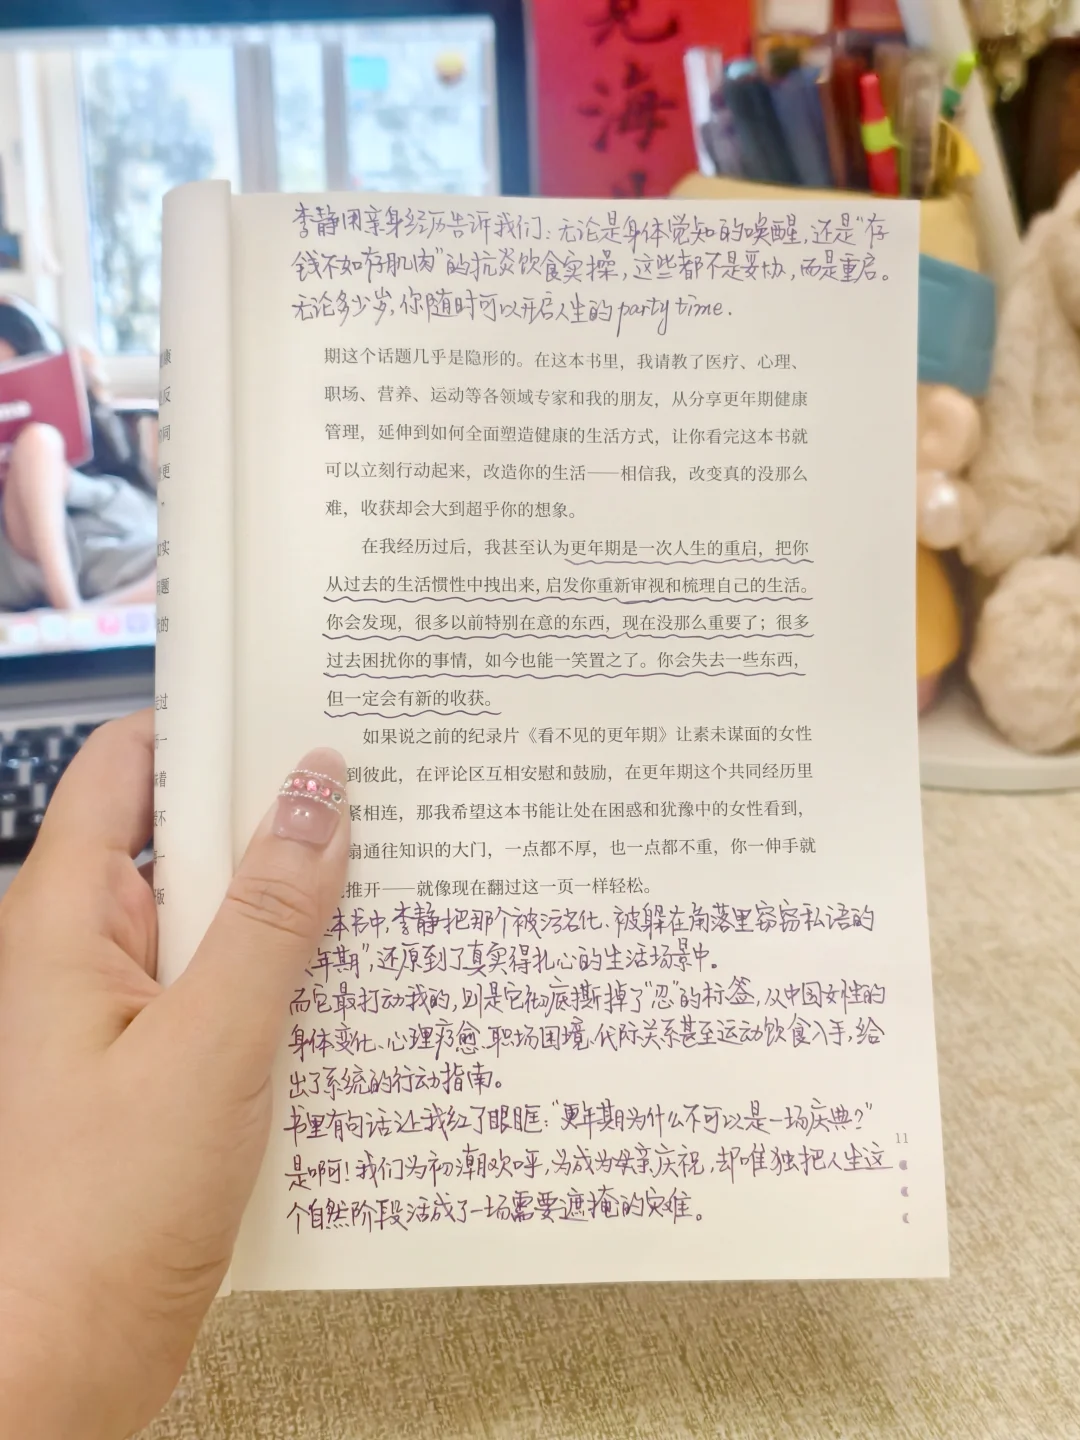 见
海
李静用亲身经历告诉我们：无论是身体觉知的唤醒，还是“存
钱不如存肌肉”的抗炎饮食实操，这些都不是妥协，而是重启。
无论多少岁，你随时可以开启人生的party time.
期这个话题几乎是隐形的。在这本书里，我请教了医疗、心理、
职场、营养、运动等各领域专家和我的朋友，从分享更年期健康
管理，延伸到如何全面塑造健康的生活方式，让你看完这本书就
可以立刻行动起来，改造你的生活——相信我，改变真的没那么
难，收获却会大到超乎你的想象。
在我经历过后，我甚至认为更年期是一次人生的重启，把你
从过去的生活惯性中拽出来，启发你重新审视和梳理自己的生活。
你会发现，很多以前特别在意的东西，现在没那么重要了；很多
过去困扰你的事情，如今也能一笑置之了。你会失去一些东西，
但一定会有新的收获。
如果说之前的纪录片《看不见的更年期》让素未谋面的女性
到彼此，在评论区互相安慰和鼓励，在更年期这个共同经历里
紧相连，那我希望这本书能让处在困惑和犹豫中的女性看到，
扇通往知识的大门，一点都不厚，也一点都不重，你一伸手就
推开——就像现在翻过这一页一样轻松。
本书中，李静把那个被污名化、被躲在角落里窃窃私语的
年期”，还原到了真实得扎心的生活场景中。
而它最打动我的，则是它彻底撕掉了“忍”的标签，从中国女性的
身体变化、心理疗愈、职场困境、代际关系甚至运动饮食入手，给
出了系统的行动指南。
书里有句话让我红了眼眶：“更年期为什么不可以是一场庆典？”
是啊！我们为初潮欢呼，为成为母亲庆祝，却唯独把人生这
个自然阶段活成了一场需要遮掩的灾难。
11